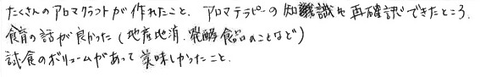 たくさんのアロマクラフトが作れたこと、アロマテラピーの知識を再確認できたところ。
食育の話が良かった(地産地消、発酵食品のことなど)
試食のボリュームがあって美味しかったこと。